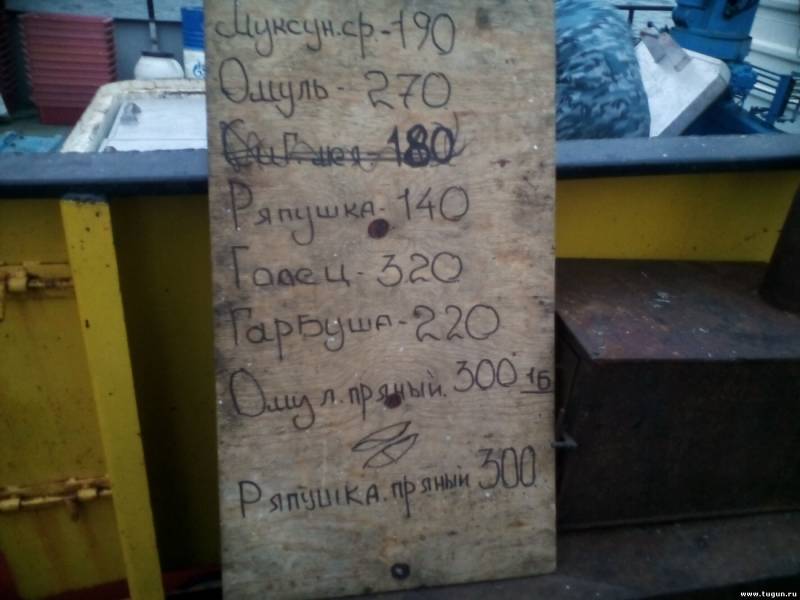 Муксун.ср.-190
Омуль- 270
180
Ряпушка-140
Голец-320
Гарбуша-220
Омул.пряный.300 1б
Ряпушка.пряный 300
www.tugun.ru